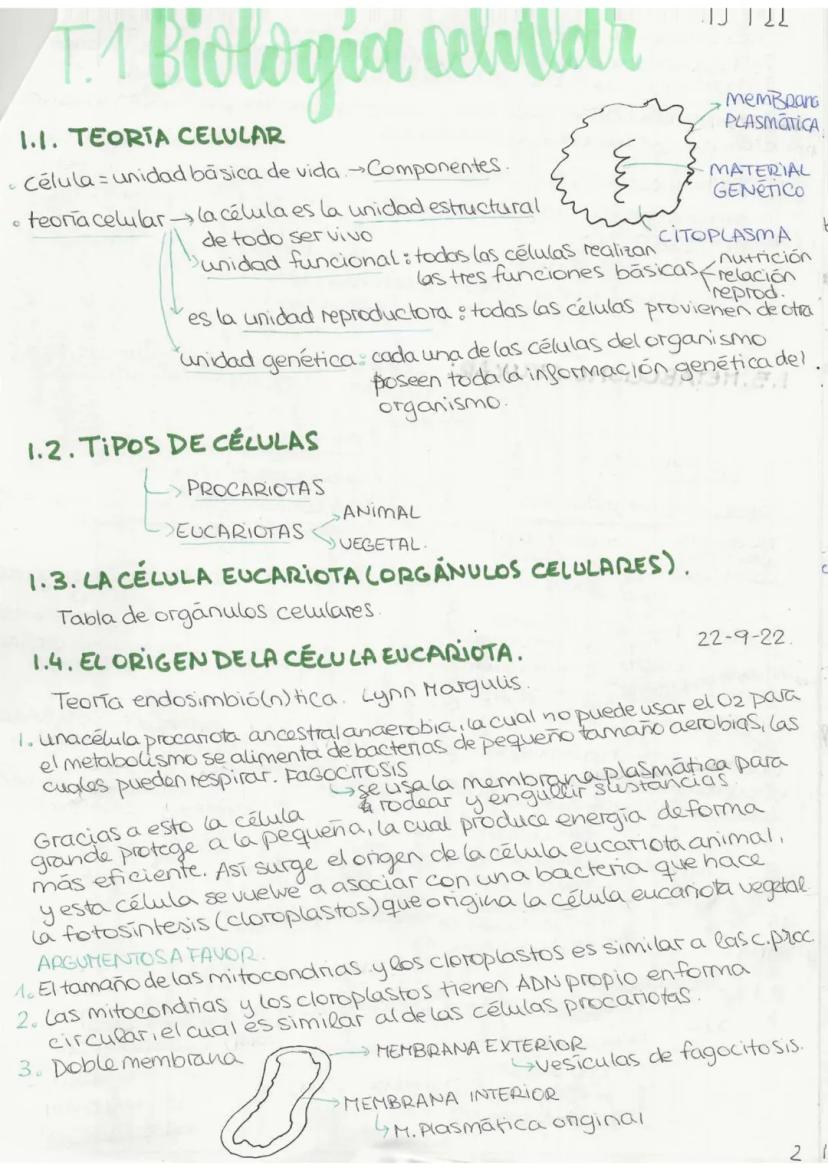 T.1 Biología celular
membrana
PLASMÁTICA
1.1. TEORÍA CELULAR
célula = unidad básica de vida. → Componentes.
MATERIAL
GENÉTICO
teoría celular → la célula es la unidad estructural
de todo ser vivo
CITOPLASMA
unidad funcional: todas las células realizan
las tres funciones básicas
nutrición
relación
reprod.
es la unidad reproductora: todas las células provienen de otra
unidad genética: cada una de las células del organismo
poseen toda la información genética del
organismo.
1.2. TIPOS DE CÉLULAS
PROCARIOTAS
ANIMAL
EUCARIOTAS
VEGETAL.
1.3. LA CÉLULA EUCARIOTA (ORGÁNULOS CELULARES).
Tabla de orgánulos celulares.
22-9-22.
1.4. EL ORIGEN DE LA CÉLULA EUCARIOTA.
Teoría endosimbió(n)tica. Lynn Margulis.
1. una célula procariota ancestral anaerobia, la cual no puede usar el O2 para
el metabolismo se alimenta de bacterias de pequeño tamaño aerobias, las
cuales pueden respirar. FAGOCITOSIS
se usa la membrana plasmática para
rodear y engullir sustancias
Gracias a esto la célula
grande protege a la pequeña, la cual produce energía de forma
más eficiente. Así surge el origen de la célula eucariota animal,
y esta célula se vuelve a asociar con una bacteria que hace
la fotosíntesis (cloroplastos) que origina la célula eucariota vegetal
ARGUMENTOS A FAVOR.
1. El tamaño de las mitocondrias y los cloroplastos es similar a las c. proc
2. Las mitocondrias y los cloroplastos tienen ADN propio en forma
circular, el cual es similar al de las células procariotas.
3. Doble membrana
MEMBRANA EXTERIOR
vesículas de fagocitosis.
MEMBRANA INTERIOR
M. Plasmática original
2